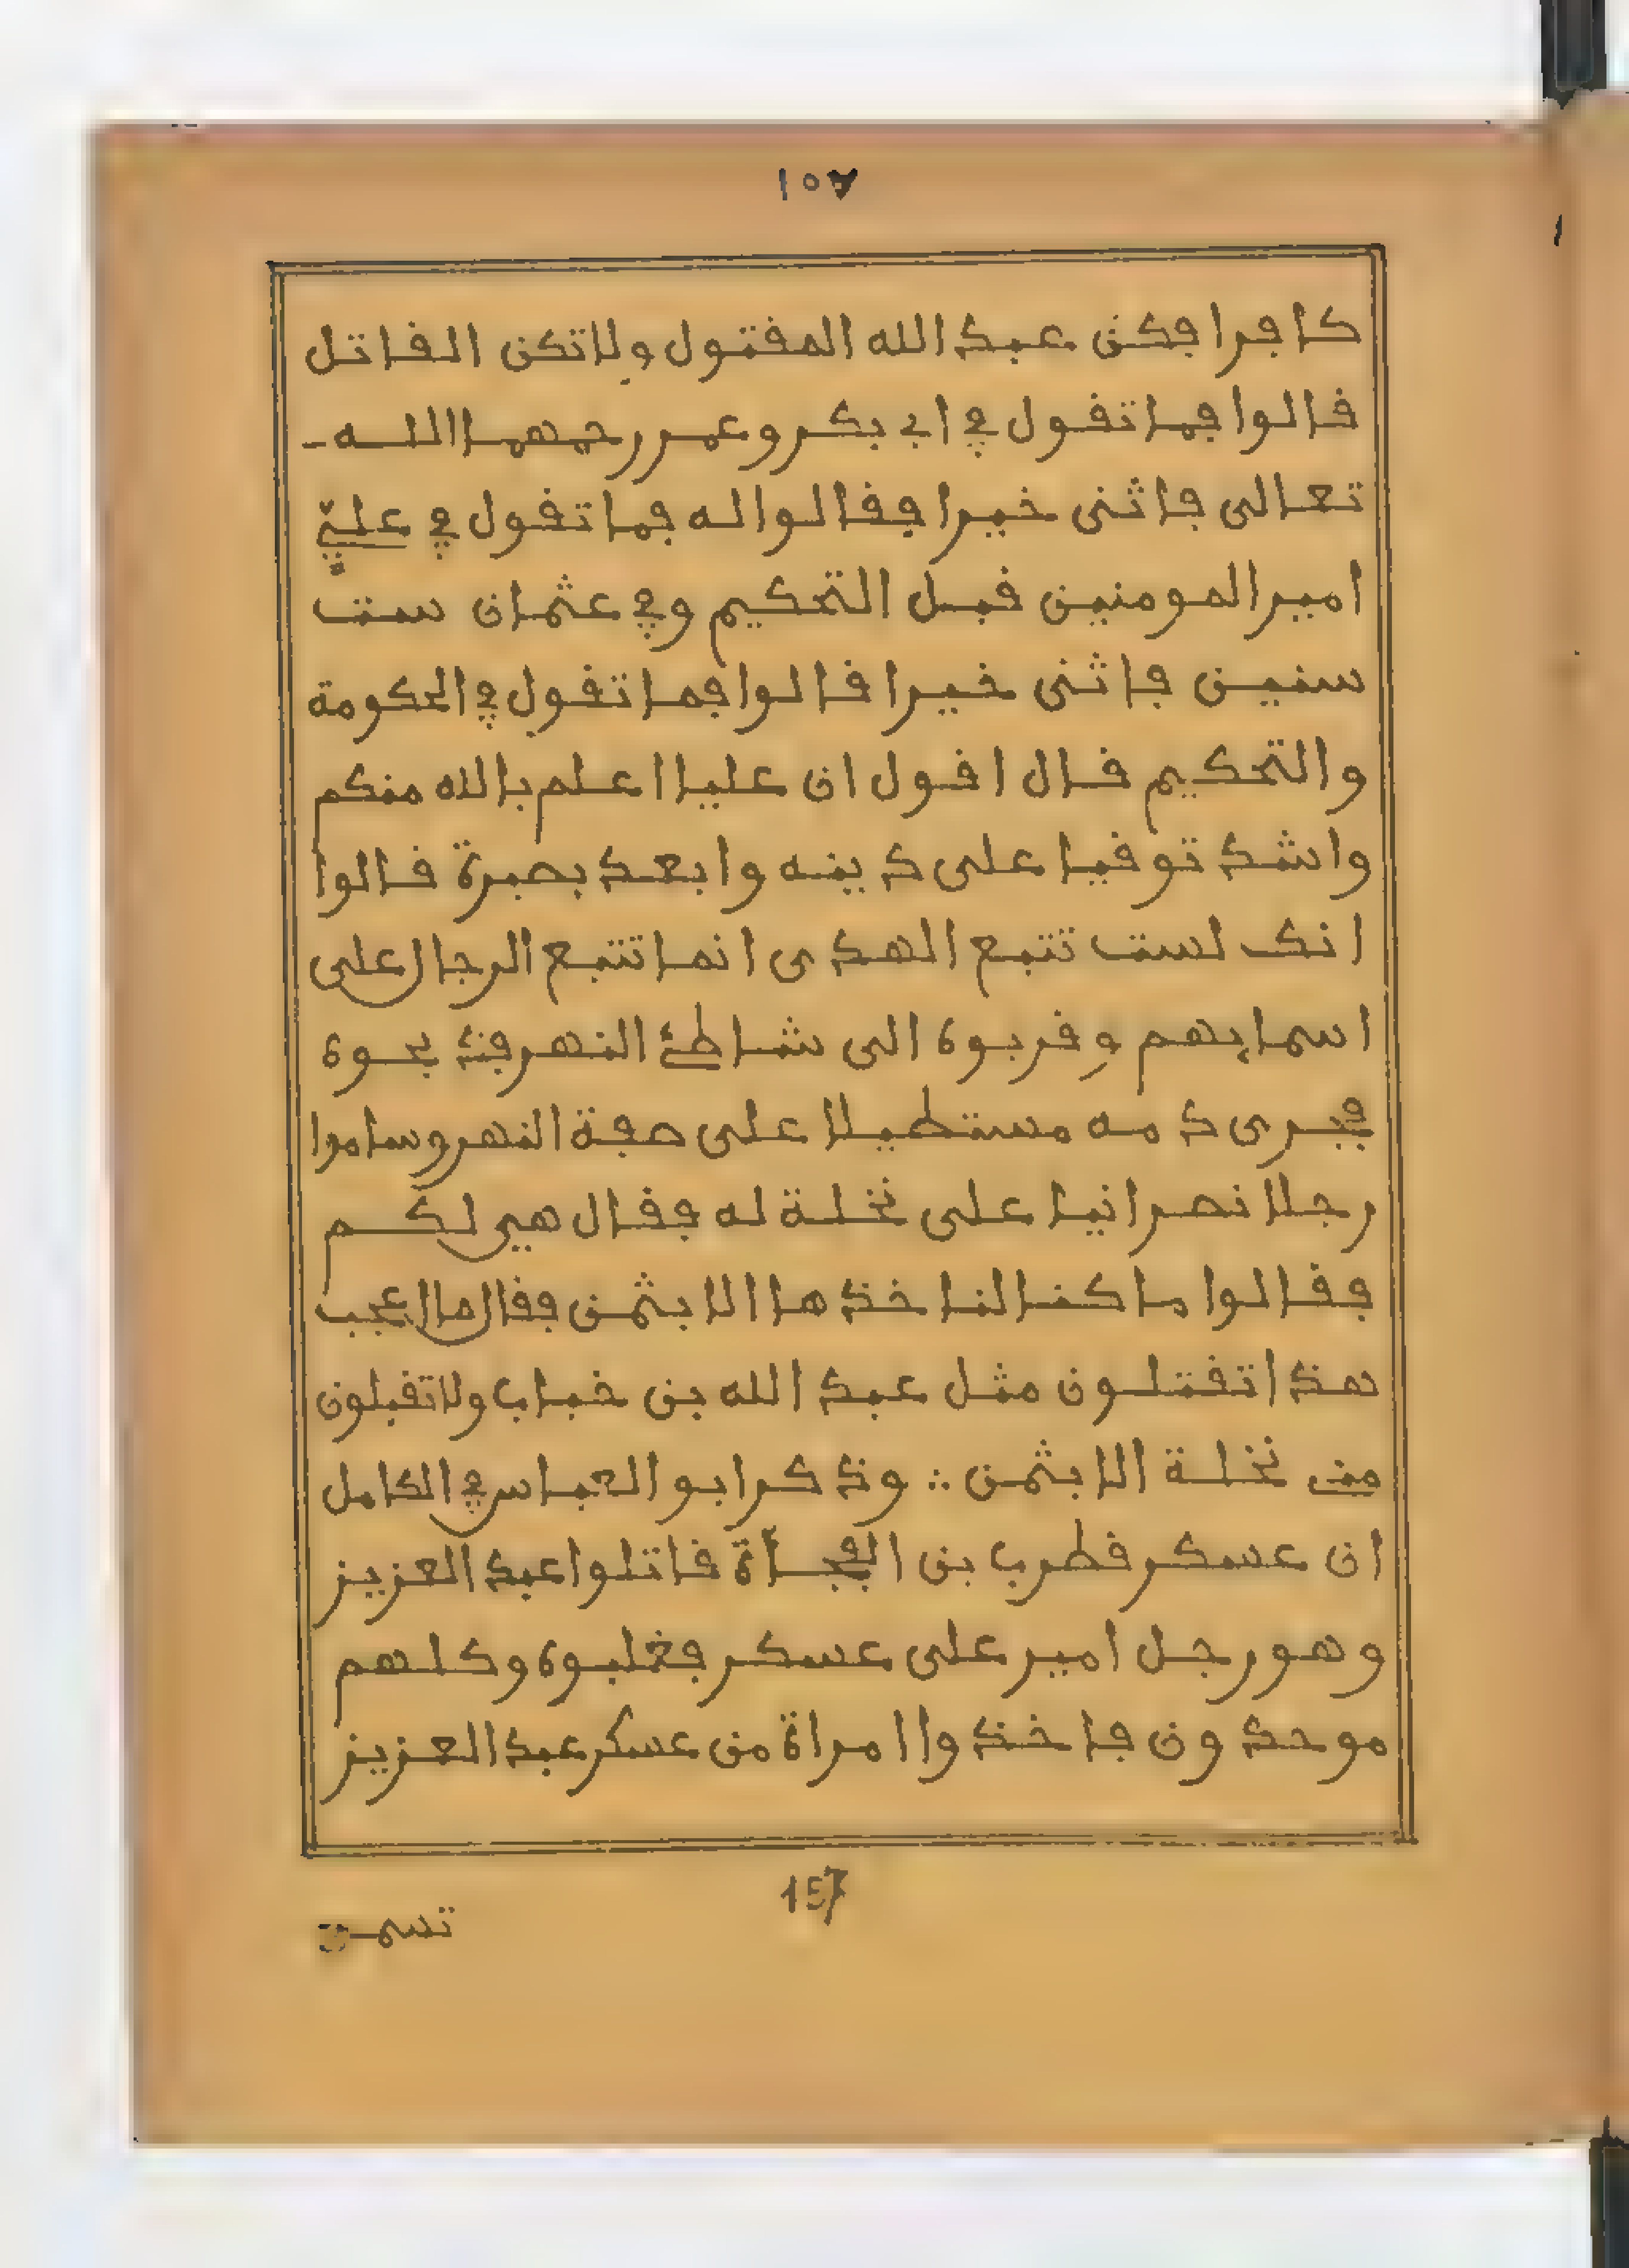 ١٥٧
كافرا فكن عبد الله المقتول ولا تكن القاتل
قالوا فما تقول في ابي بكر وعمر رحمهما الله
تعالى فاثنى خيرا فقالوا له فما تقول في علي
امير المومنين قبل التحكيم وفي عثمان ست
سنين فاثنى خيرا قالوا فما تقول في الحكومة
والتحكيم قال اقول ان عليا اعلم بالله منكم
واشد توقيا على دينه وابعد بصيرة قالوا
انك لست تتبع الهدى انما تتبع الرجال على
اسمايهم وقربوه الى شاطئ النهر فذبحوه
فجرى دمه مستطيلا على صفة النهر وساموا
رجلا نصرانيا على نخلة له فقال هي لكم
فقالوا ما كنا لناخذها الا بثمن فقال ما اعجب
هذا تقتلون مثل عبد الله بن خباب ولا تقبلون
من نخلة الا بثمن ∴ وذكر ابو العباس في الكامل
ان عسكر قطرب بن الفجأة قاتلوا عبد العزيز
وهو رجل امير على عسكر فغلبوه وكلهم
موحدون فاخذوا امراة من عسكر عبد العزيز
157